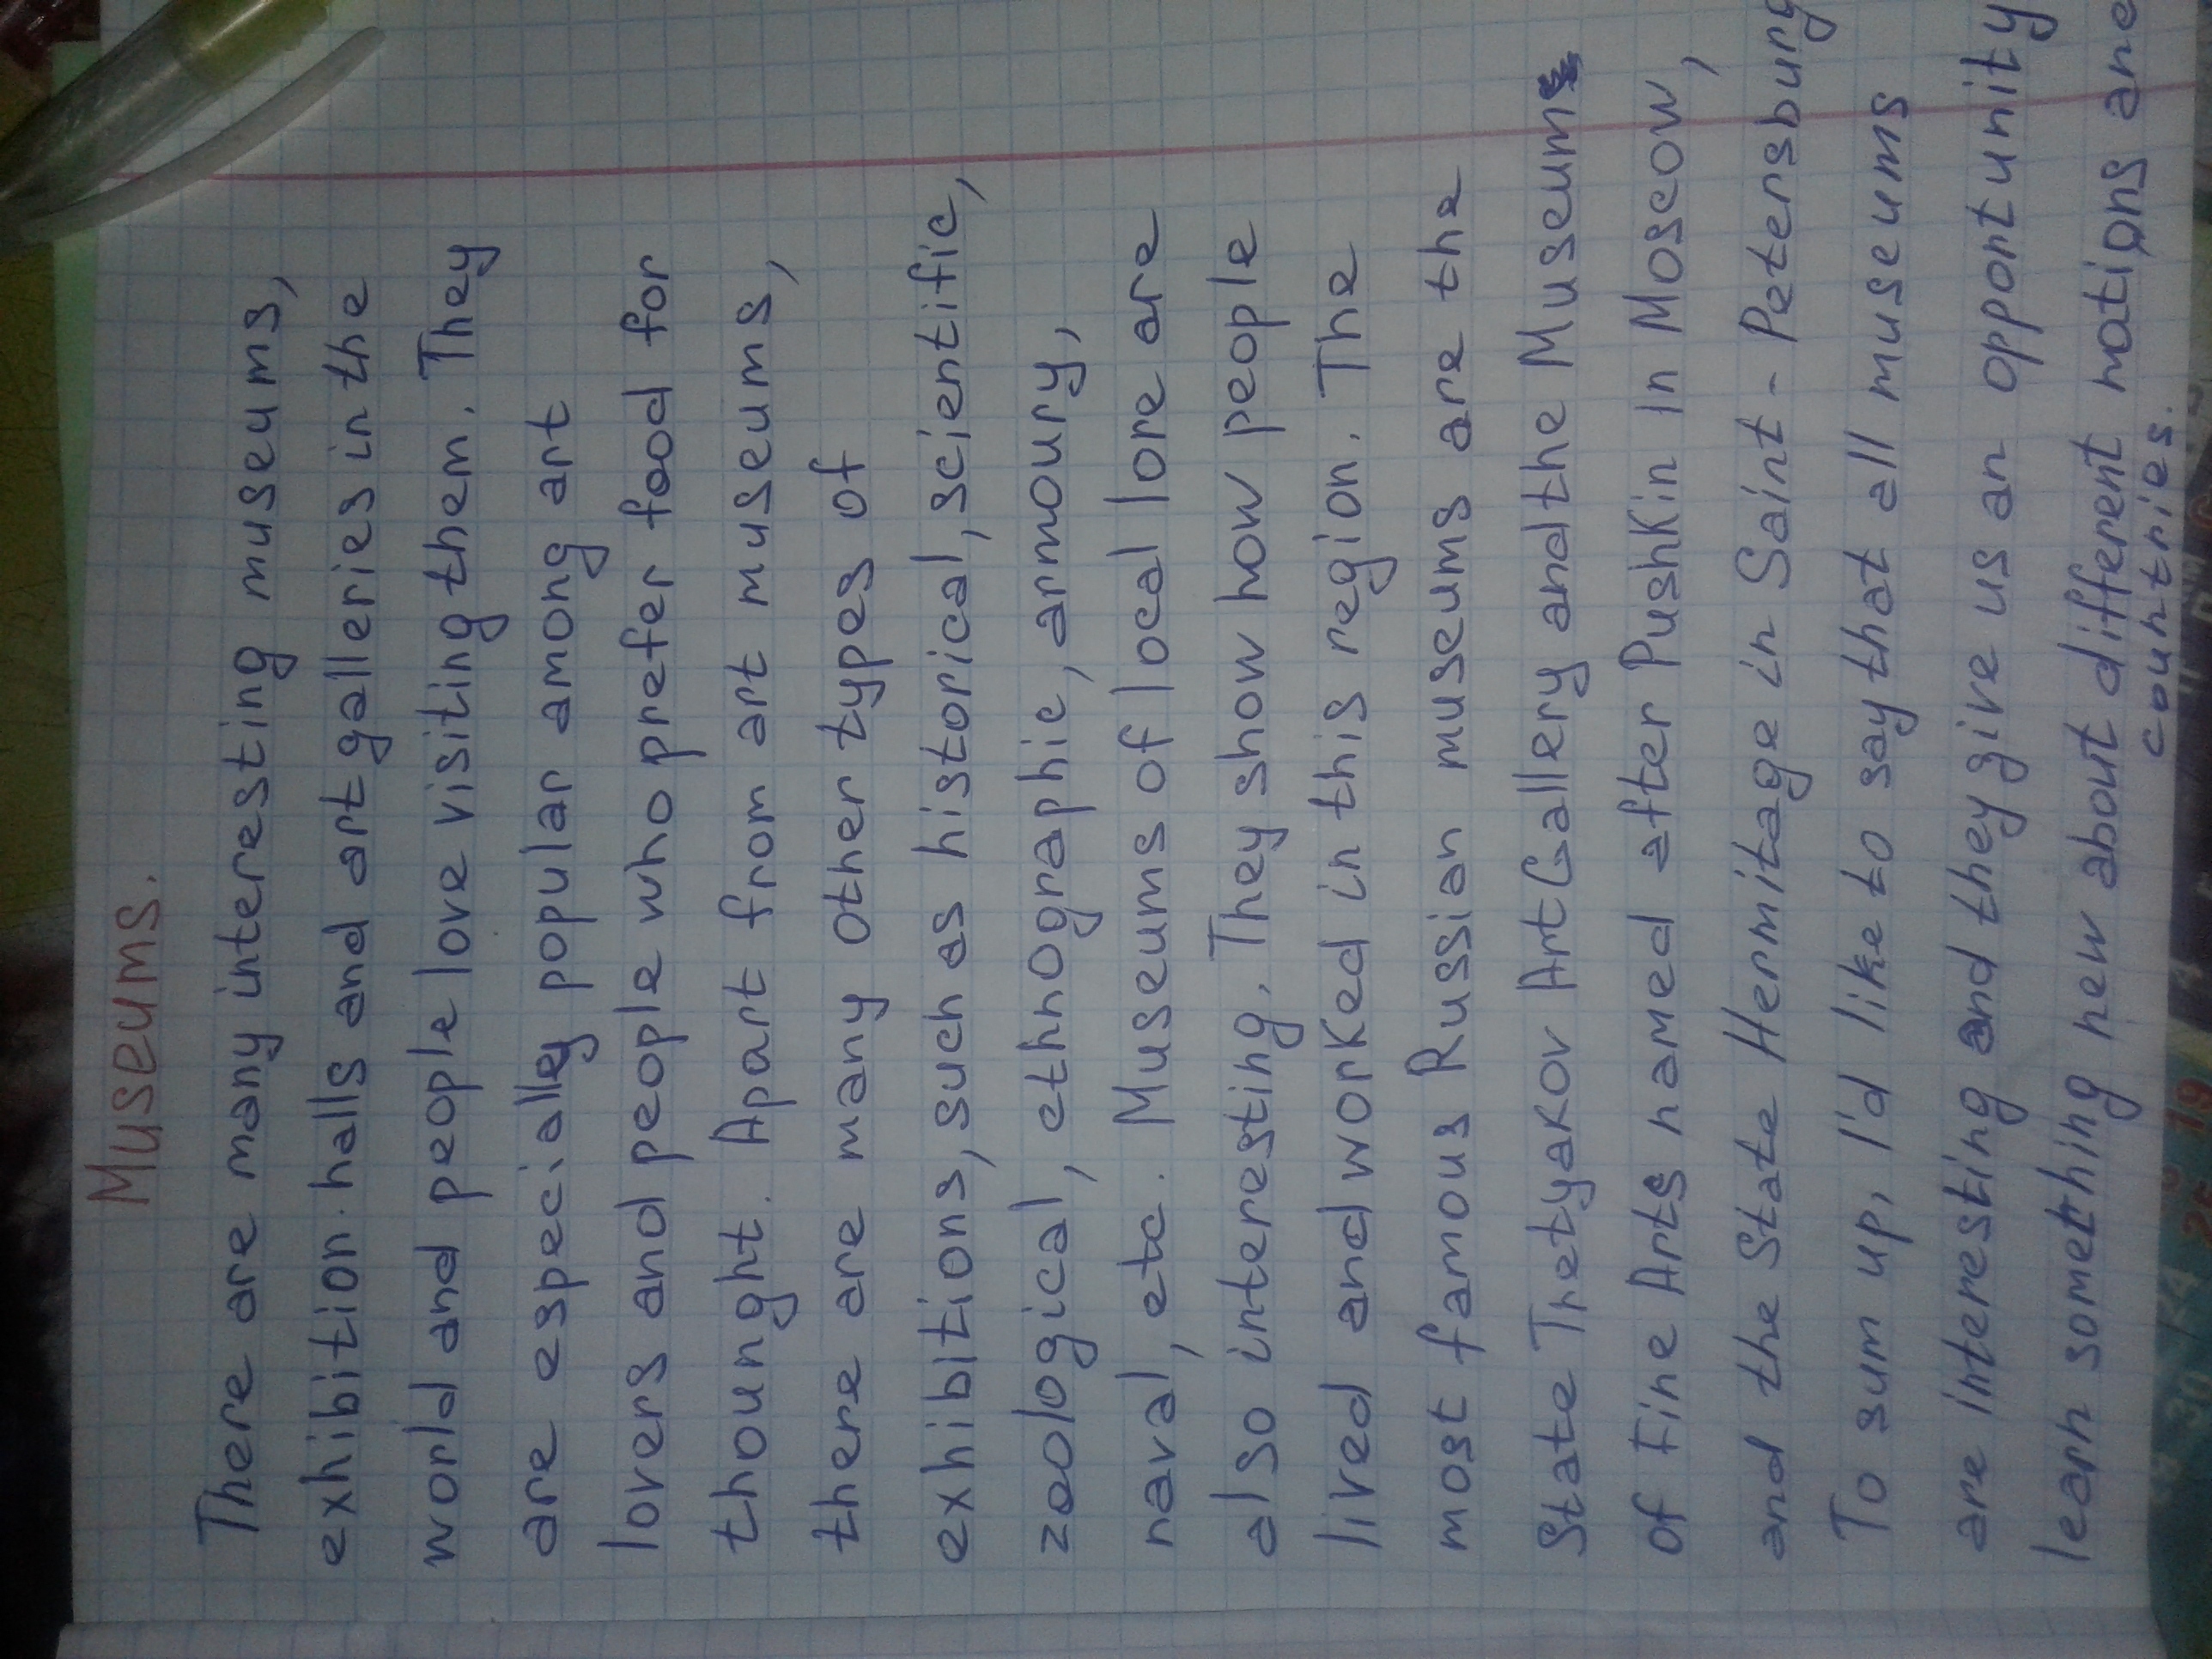 Museums.
There are many interesting museums,
exhibition halls and art galleries in the
world and people love visiting them. They
are especialley popular among art
lovers and people who prefer food for
thounght. Apart from art museums,
there are many other types of
exhibitions, such as historical, scientific,
zoological, ethnographic, armoury,
naval, etc. Museums of local lore are
also interesting. They show how people
lived and worked in this region. The
most famous Russian museums are the
State Thetyakov Art Gallery and the Museum
of Fine Arts named after Pushkin in Moscow,
and the State Hermitage in Saint-Petersburg
To sum up, I'd like to say that all museums
are interesting and they give us an opportunity
learn something new about different nations and
countries.
24
30
19
25